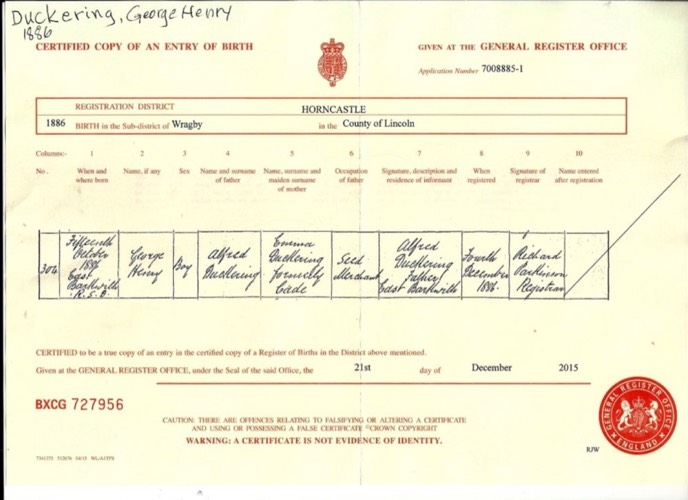 Duckering, George Henry
1886
CERTIFIED COPY OF AN ENTRY OF BIRTH
GIVEN AT THE GENERAL REGISTER OFFICE
Application Number 7008885-1
REGISTRATION DISTRICT HORNCASTLE
1886 BIRTH in the Sub-district of Wragby in the County of Lincoln
Columns:- 1 2 3 4 5 6 7 8 9 10
No. When and where born Name, if any Sex Name and surname of father Name, surname and maiden surname of mother Occupation of father Signature, description and residence of informant When registered Signature of registrar Name entered after registration
304 Fifteenth October 1886 East Barkwith R.S.D. George Henry Boy Alfred Duckering Emma Duckering formerly Cade Seed Merchant Alfred Duckering Father East Barkwith Fourth December 1886. Richard Parkinson Registrar
CERTIFIED to be a true copy of an entry in the certified copy of a Register of Births in the District above mentioned.
Given at the GENERAL REGISTER OFFICE, under the Seal of the said Office, the 21st day of December 2015
BXCG 727956
CAUTION: THERE ARE OFFENCES RELATING TO FALSIFYING OR ALTERING A CERTIFICATE
AND USING OR POSSESSING A FALSE CERTIFICATE ©CROWN COPYRIGHT
WARNING: A CERTIFICATE IS NOT EVIDENCE OF IDENTITY.
GENERAL REGISTER OFFICE
ENGLAND
RJW